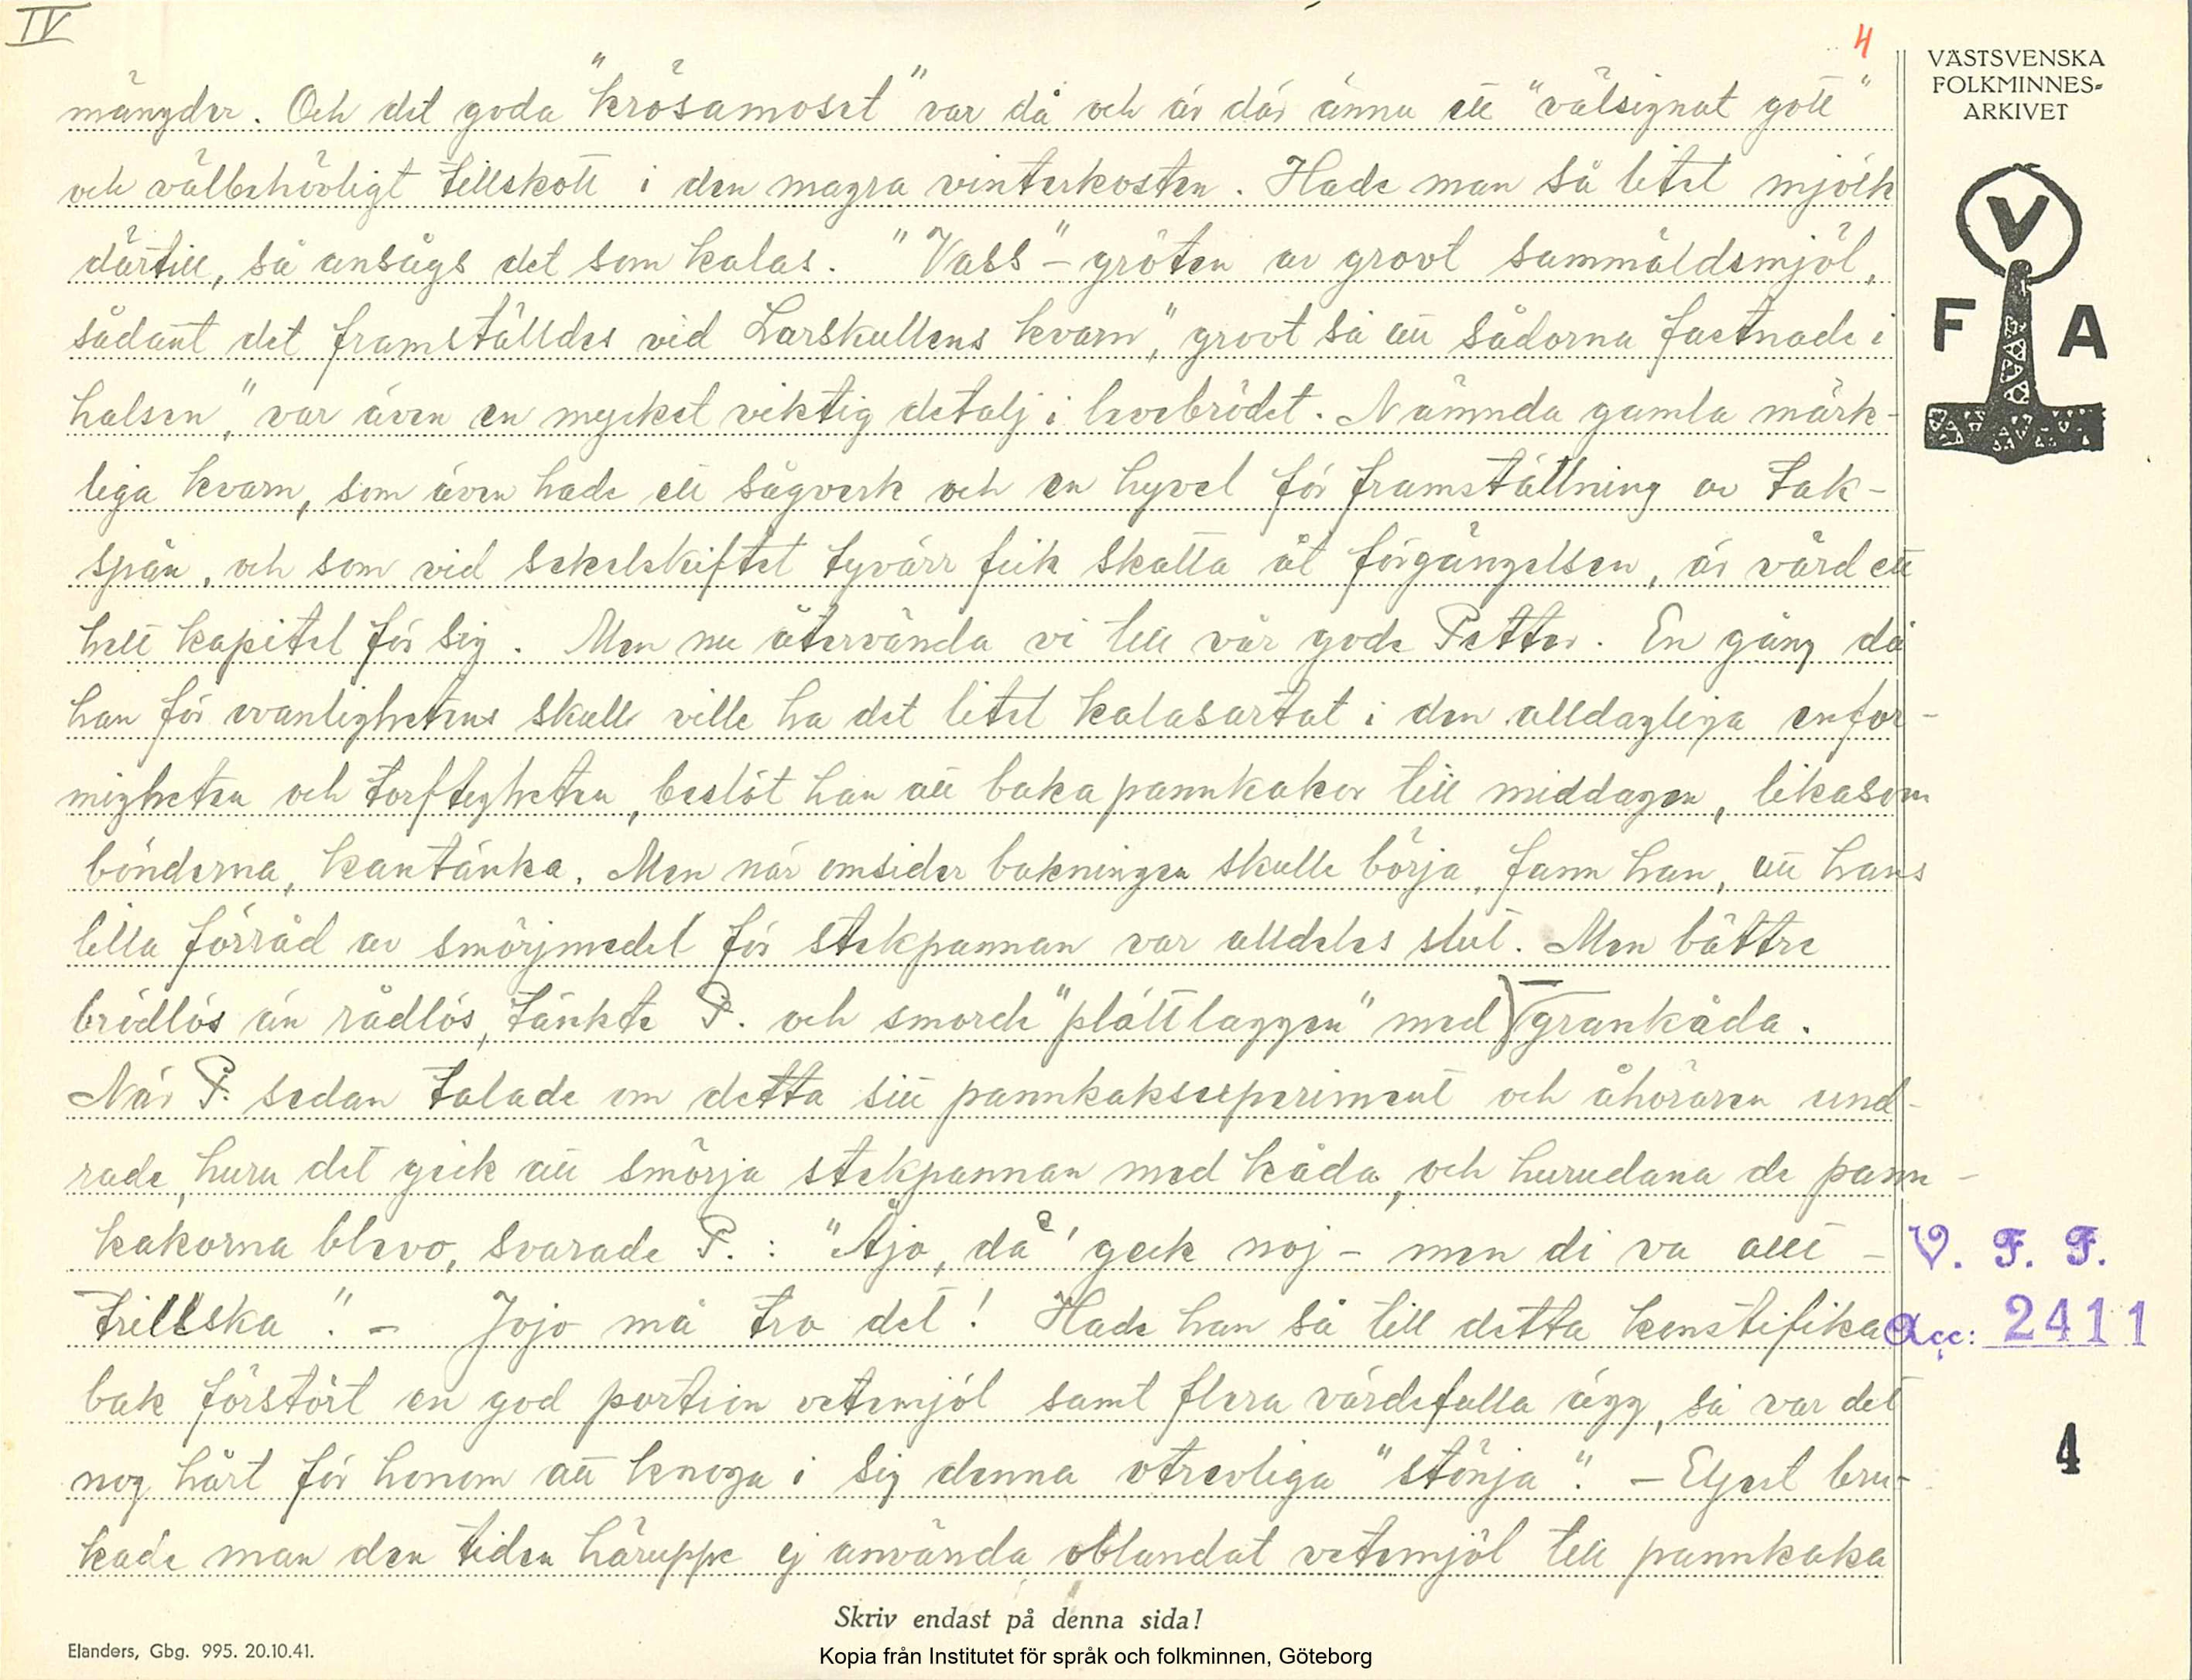 IV
4
mängder. Och det goda "krösamoset" var då och är där ännu ett "välsignat gott"
och välbehövligt tillskott i den magra vinterkosten. Hade man så litet mjölk
därtill, så ansågs det som kalas. "Vass"-gröten av grovt sammäldsmjöl,
sådant det framställdes vid Larskullens kvarn, "grovt så att sådorna fastnade i
halsen," var även en mycket viktig detalj i levebrödet. Nämnda gamla märk-
liga kvarn, som även hade ett sågverk och en hyvel för framställning av tak-
spån, och som vid sekelskiftet tyvärr fick skatta åt förgängelsen, är värd ett
helt kapitel för sig. Men nu återvända vi till vår gode Petter. En gång då
han för ovanlighetens skull ville ha det litet kalasartat i den alldagliga enfor-
migheten och torftigheten, beslöt han att baka pannkakor till middagen, likasom
bönderna, kantänka. Men när omsider bakningen skulle börja, fann han, att hans
lilla förråd av smörjmedel för stekpannan var alldeles slut. Men bättre
brödlös än rådlös, tänkte P. och smorde "plättlaggen" med grankåda.
När P. sedan talade om detta sitt pannkaksexperiment och åhöraren und-
rade, huru det gick att smörja stekpannan med kåda, och hurudana de pann-
kakorna blevo, svarade P.: "Åjo, då' geck noj – men di va allt –
trillska". – Jojo må tro det! Hade han så till detta konstifika
bak förstört en god portion vetemjöl samt flera värdefulla ägg, så var det
nog hårt för honom att knoga i sig denna otrevliga "stönja". – Eljest bru-
kade man den tiden häruppe ej använda oblandat vetemjöl till pannkaka
VÄSTSVENSKA
FOLKMINNES-
ARKIVET
V
F A
V. F. F.
Acc: 2411
4
Skriv endast på denna sida!
Elanders, Gbg. 995. 20.10.41.
Kopia från Institutet för språk och folkminnen, Göteborg